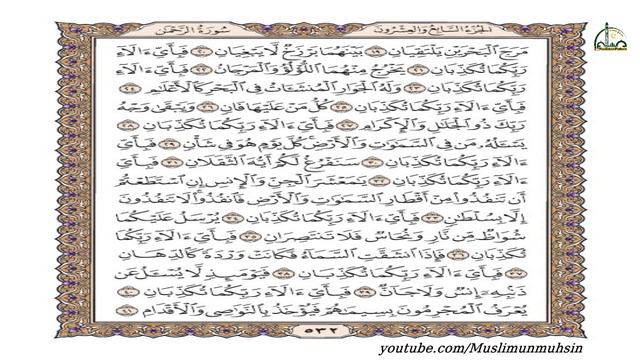 الجزء السابع والعشرون سورة الرحمن
مَرَجَ ٱلْبَحْرَيْنِ يَلْتَقِيَانِ ١٩ بَيْنَهُمَا بَرْزَخٌ لَّا يَبْغِيَانِ ٢٠ فَبِأَيِّ ءَالَآءِ
رَبِّكُمَا تُكَذِّبَانِ ٢١ يَخْرُجُ مِنْهُمَا ٱللُّؤْلُؤُ وَٱلْمَرْجَانُ ٢٢ فَبِأَيِّ ءَالَآءِ
رَبِّكُمَا تُكَذِّبَانِ ٢٣ وَلَهُ ٱلْجَوَارِ ٱلْمُنشَـَٔاتُ فِى ٱلْبَحْرِ كَٱلْأَعْلَٰمِ ٢٤
فَبِأَيِّ ءَالَآءِ رَبِّكُمَا تُكَذِّبَانِ ٢٥ كُلُّ مَنْ عَلَيْهَا فَانٍ ٢٦ وَيَبْقَىٰ وَجْهُ
رَبِّكَ ذُو ٱلْجَلَٰلِ وَٱلْإِكْرَامِ ٢٧ فَبِأَيِّ ءَالَآءِ رَبِّكُمَا تُكَذِّبَانِ ٢٨
يَسْـَٔلُهُۥ مَن فِى ٱلسَّمَٰوَٰتِ وَٱلْأَرْضِ كُلَّ يَوْمٍ هُوَ فِى شَأْنٍ ٢٩ فَبِأَيِّ
ءَالَآءِ رَبِّكُمَا تُكَذِّبَانِ ٣٠ سَنَفْرُغُ لَكُمْ أَيُّهَ ٱلثَّقَلَانِ ٣١ فَبِأَيِّ
ءَالَآءِ رَبِّكُمَا تُكَذِّبَانِ ٣٢ يَٰمَعْشَرَ ٱلْجِنِّ وَٱلْإِنسِ إِنِ ٱسْتَطَعْتُمْ
أَن تَنفُذُوا۟ مِنْ أَقْطَارِ ٱلسَّمَٰوَٰتِ وَٱلْأَرْضِ فَٱنفُذُوا۟ لَا تَنفُذُونَ
إِلَّا بِسُلْطَٰنٍ ٣٣ فَبِأَيِّ ءَالَآءِ رَبِّكُمَا تُكَذِّبَانِ ٣٤ يُرْسَلُ عَلَيْكُمَا
شُوَاظٌ مِّن نَّارٍ وَنُحَاسٌ فَلَا تَنتَصِرَانِ ٣٥ فَبِأَيِّ ءَالَآءِ رَبِّكُمَا
تُكَذِّبَانِ ٣٦ فَإِذَا ٱنشَقَّتِ ٱلسَّمَآءُ فَكَانَتْ وَرْدَةً كَٱلدِّهَانِ
٣٧ فَبِأَيِّ ءَالَآءِ رَبِّكُمَا تُكَذِّبَانِ ٣٨ فَيَوْمَئِذٍ لَّا يُسْـَٔلُ عَن
ذَنۢبِهِۦٓ إِنسٌ وَلَا جَآنٌّ ٣٩ فَبِأَيِّ ءَالَآءِ رَبِّكُمَا تُكَذِّبَانِ ٤٠
يُعْرَفُ ٱلْمُجْرِمُونَ بِسِيمَٰهُمْ فَيُؤْخَذُ بِٱلنَّوَٰصِى وَٱلْأَقْدَامِ ٤١
٥٣٢
youtube.com/Muslimunmuhsin